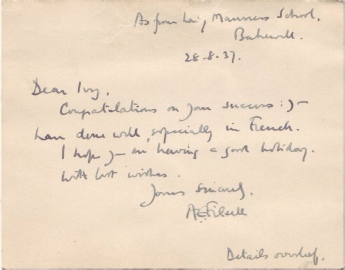 As from Lady Manners School,
Bakewell.
28-8-37.
Dear Ivy,
Congratulations on your success: you
have done well, especially in French.
I hope you are having a good holiday.
With best wishes.
Yours sincerely,
Details overleaf.